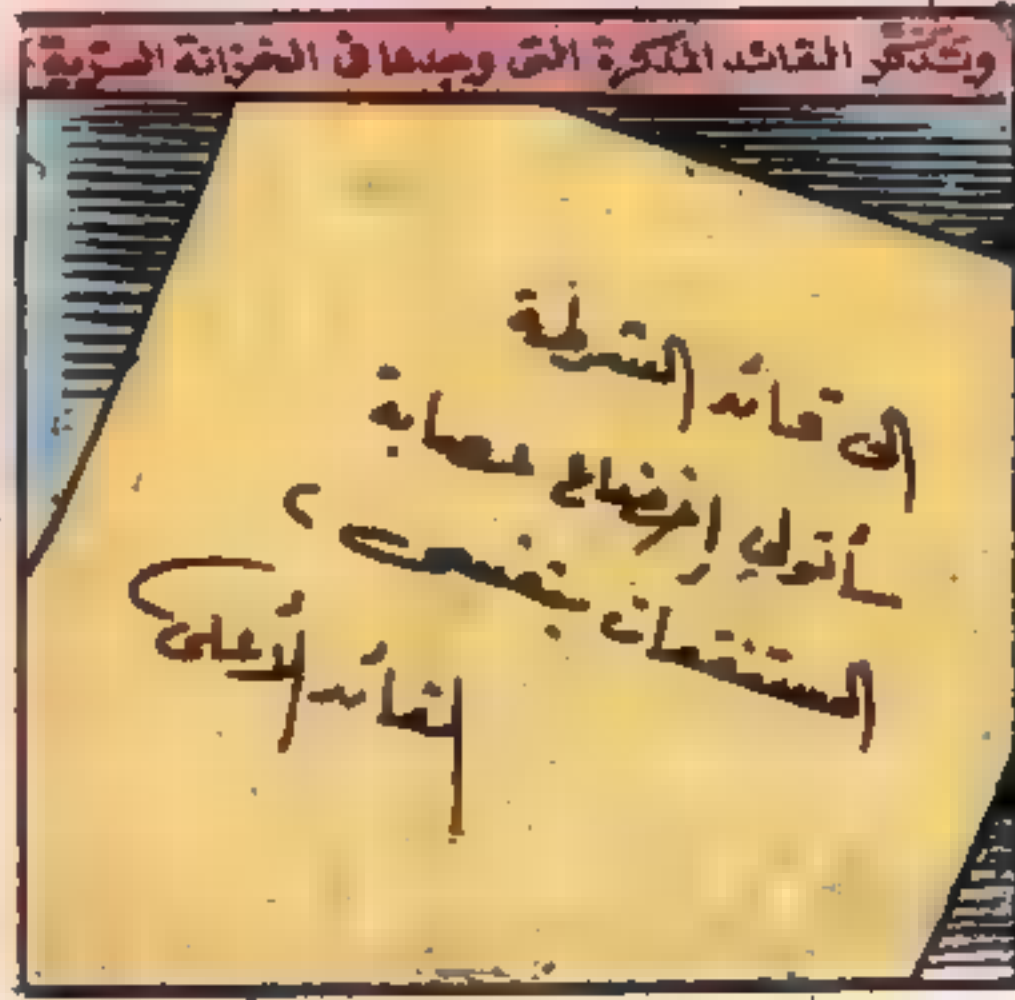 وتذكر القائد المذكرة التى وجدها فى الخزانة السرية
الى قائد الشرطة
سأتولى إخضاع عصابة
المستنقعات بنفسى
القائد الأعلى